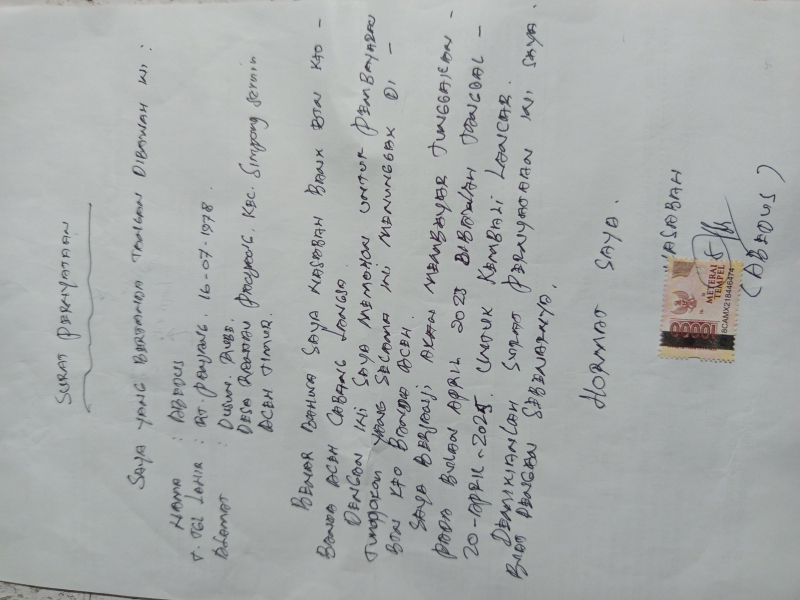 SURAT PERNYATAAN
SAYA YANG BERTANDA TANGAN DIBAWAH INI :
NAMA : ABEDUS
T. TGL LAHIR : RT. PANJANG. 16-07-1978.
ALAMAT : DUSUN.
DESA RANTAU PANJANG. KEC. Simpang Jernih
ACEH TIMUR.
BENAR BAHWA SAYA NASABAH BANK BTN KTO -
BANDA ACEH CABANG LANGSA.
DENGAN INI SAYA MEMOHON UNTUK PEMBAYARAN
TUNGGAKAN YANG SELAMA INI MENUNGGAK DI -
BTN KTO BANDA ACEH.
SAYA BERJANJI AKAN MEMBAYAR TUNGGAKAN -
PADA BULAN APRIL 2025 DIBAWAH TANGGAL -
20-APRIL-2025. UNTUK KEMBALI LANCAR.
DEMIKIANLAH SURAT PERNYATAAN INI SAYA
BUAT DENGAN SEBENARNYA.
HORMAT SAYA.
NASABAH
METERAI
TEMPEL
8CAMX218446474
(ABEDUS)